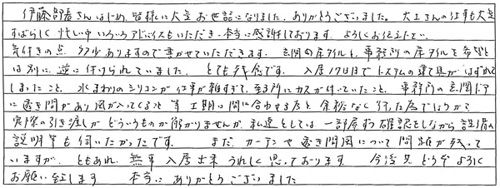 伊藤部長さんはじめ、皆様に大変お世話になりました。ありがとうございました。大工さんの仕事も大変
すばらしく 忙しい中 いろいろアドバイスもいただき、本当に感謝しております。ようにお伝え下さい。
気付きの点 多少ありますので書かせていただきます。玄関の床タイルと、事務所の床タイルを希望と
は別に、逆に付けられていました。とても残念です。入居17日目でシステムの建て具がはずれて
しまったこと、水まわりのシリコンが仕事が雑すぎて、毛玉所にカスが付いていたこと、事務所の玄関ドア
に透き間があり風が入ってくること等 工期に間に合わすると、余裕なく行った為でしょうか
実際の引き渡しがどういうものか解かりませんが、私達としては一部屋ずつ確認をしながら設備の
説明等も伺いたかったです。まだ、カーテンや透き間風について問題が残って
いますが、ともあれ、無事入居出来うれしく思っております。今後共どうぞよろしく
お願い致します 本当にありがとうございました